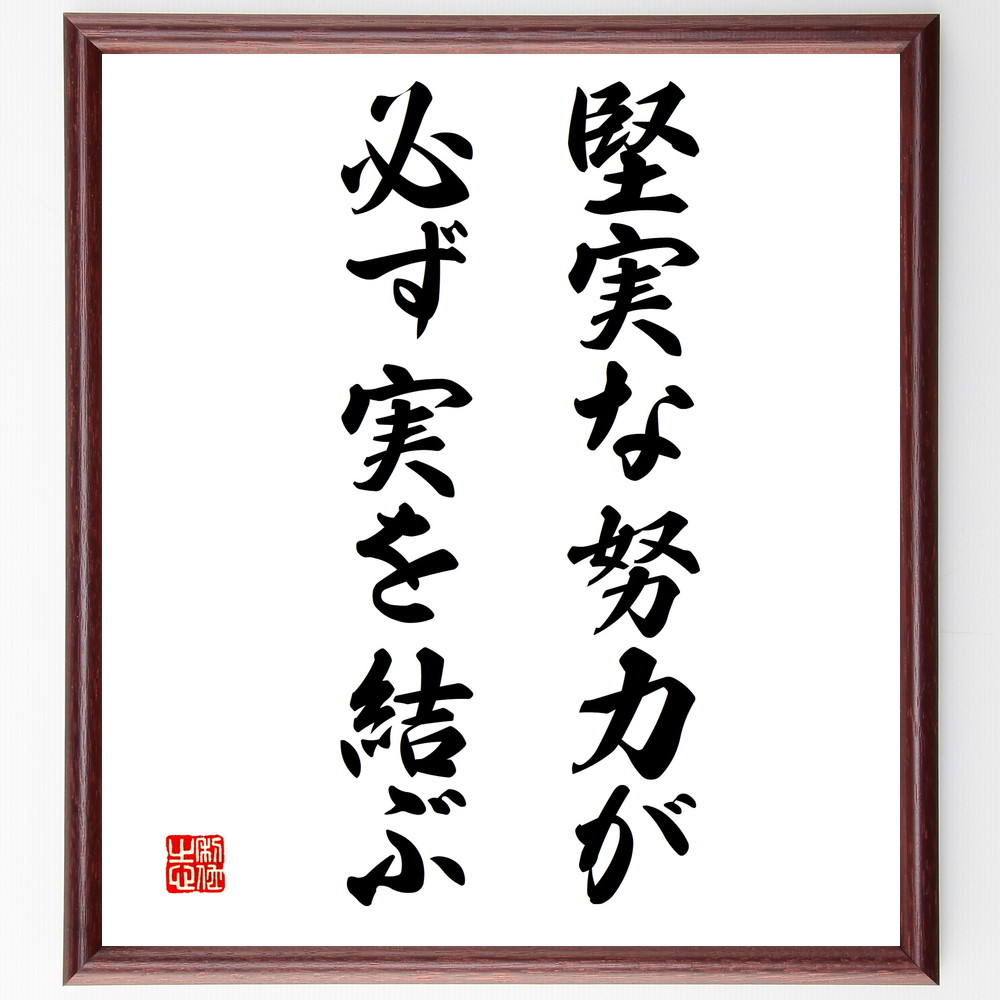 堅実な努力が
必ず実を結ぶ